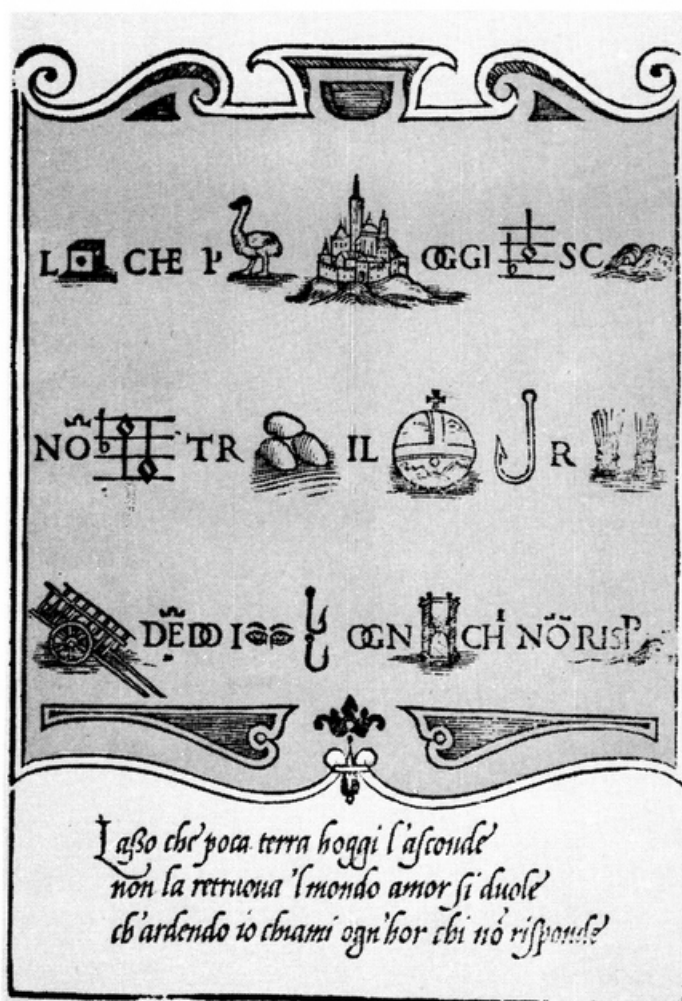 L CHE P OGGI SC
NÕ TR IL R
DẼDO I OGN CHI NÕ RISP
Laßo che poca terra hoggi l'asconde
non la retruoua 'l mondo amor si duole
ch'ardendo io chiami ogn'hor chi nõ risponde